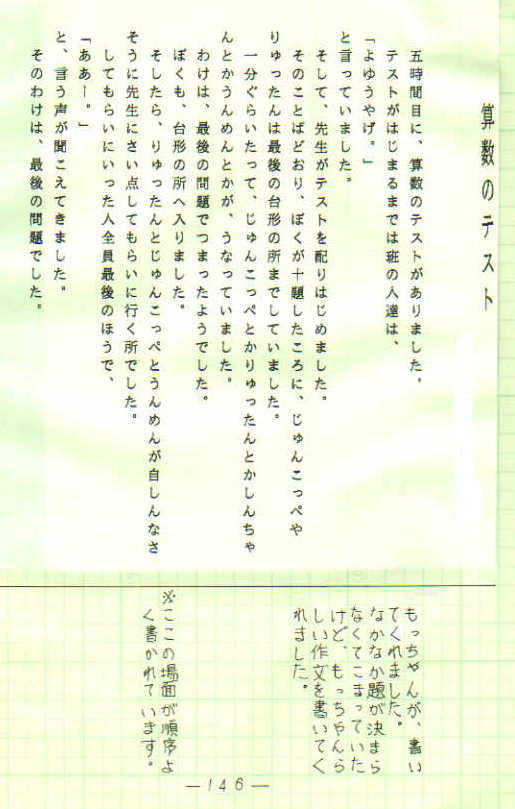 算数のテスト
五時間目に、算数のテストがありました。
テストがはじまるまでは班の人達は、
「よゆうやげ。」
と言っていました。
そして、先生がテストを配りはじめました。
そのことばどおり、ぼくが十題したころに、じゅんこっぺや
りゅったんは最後の台形の所までしていました。
一分ぐらいたって、じゅんこっぺとかりゅったんとかしんちゃ
んとかうんめんとかが、うなっていました。
わけは、最後の問題でつまったようでした。
ぼくも、台形の所へ入りました。
そしたら、りゅったんとじゅんこっぺとうんめんが自しんなさ
そうに先生にさい点してもらいに行く所でした。
してもらいにいった人全員最後のほうで、
「ああー。」
と、言う声が聞こえてきました。
そのわけは、最後の問題でした。
もっちゃんが、書い
てくれました。
なかなか題が決まら
なくてこまっていた
けど、もっちゃんら
しい作文を書いてく
れました。
※ここの場面が順序よ
く書かれています。
—146—